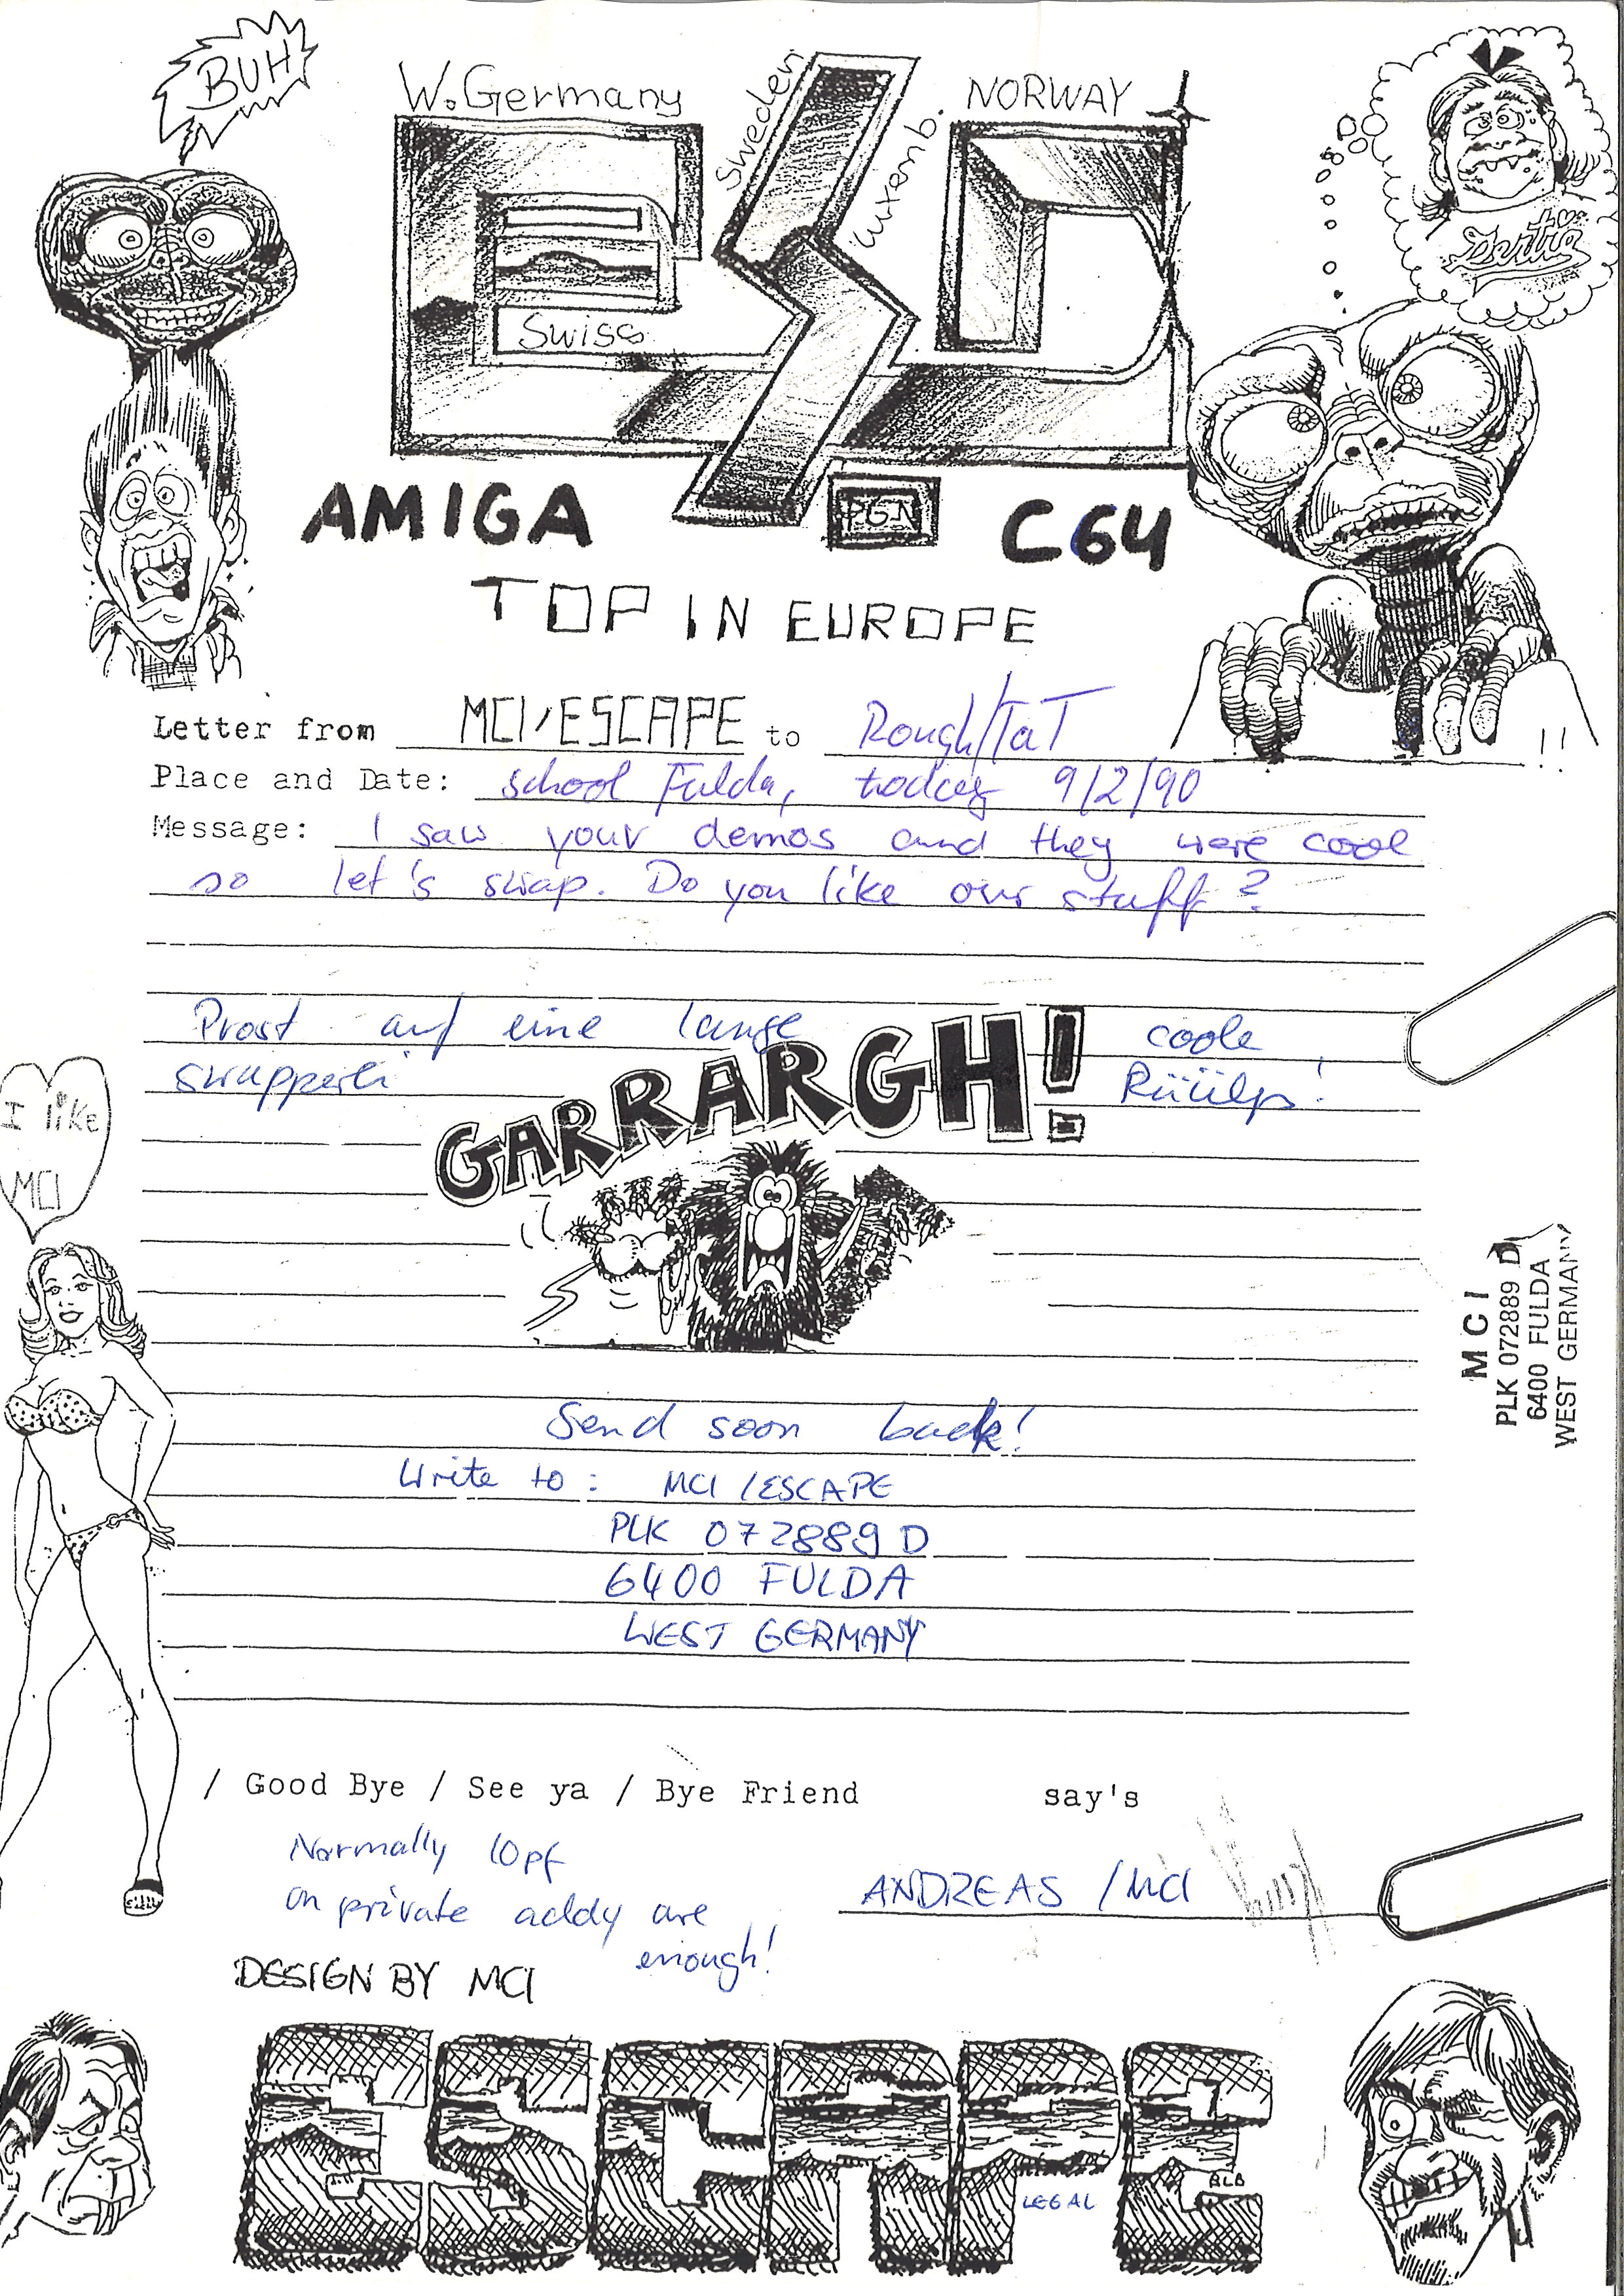 BUH
W.Germany
Sweden
Luxemb.
NORWAY
ESD
Swiss
I ♡
AMIGA
C64
TOP IN EUROPE
Letter from MCI/ESCAPE to Rough/TaT
Place and Date: school Fulda, today 9/2/90
!!
Message: I saw your demos and they were cool
so let's swap. Do you like our stuff?
Prost auf eine lange coole
swapperei Rüüülps!
GARRARGH!
I like
MCI
MCI
PLK 072889 D
6400 FULDA
WEST GERMANY
Send soon back!
Write to: MCI /ESCAPE
PLK 072889 D
6400 FULDA
WEST GERMANY
/ Good Bye / See ya / Bye Friend say's
Normally 10pf
on private addy are
enough!
ANDREAS /MCI
DESIGN BY MCI
ESCAPE
LEGAL
BLB